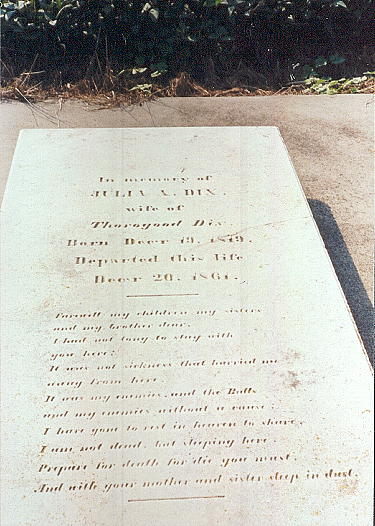 In memory of
JULIA A. DIX.
wife of
Thorogood Dix.
Born Decr 13, 1819.
Departed this life
Decr 20, 1861.
Farewell my children my sisters
and my brother dear,
I had not long to stay with
you here;
It was not sickness that hurried me
away from here,
It was my enimies, and the Balls
and my enimies without a cause;
I have gone to rest in heaven to share,
I am not dead, but sleping here.
Prepare for death for die you must,
And with your mother and sister sleep in dust.